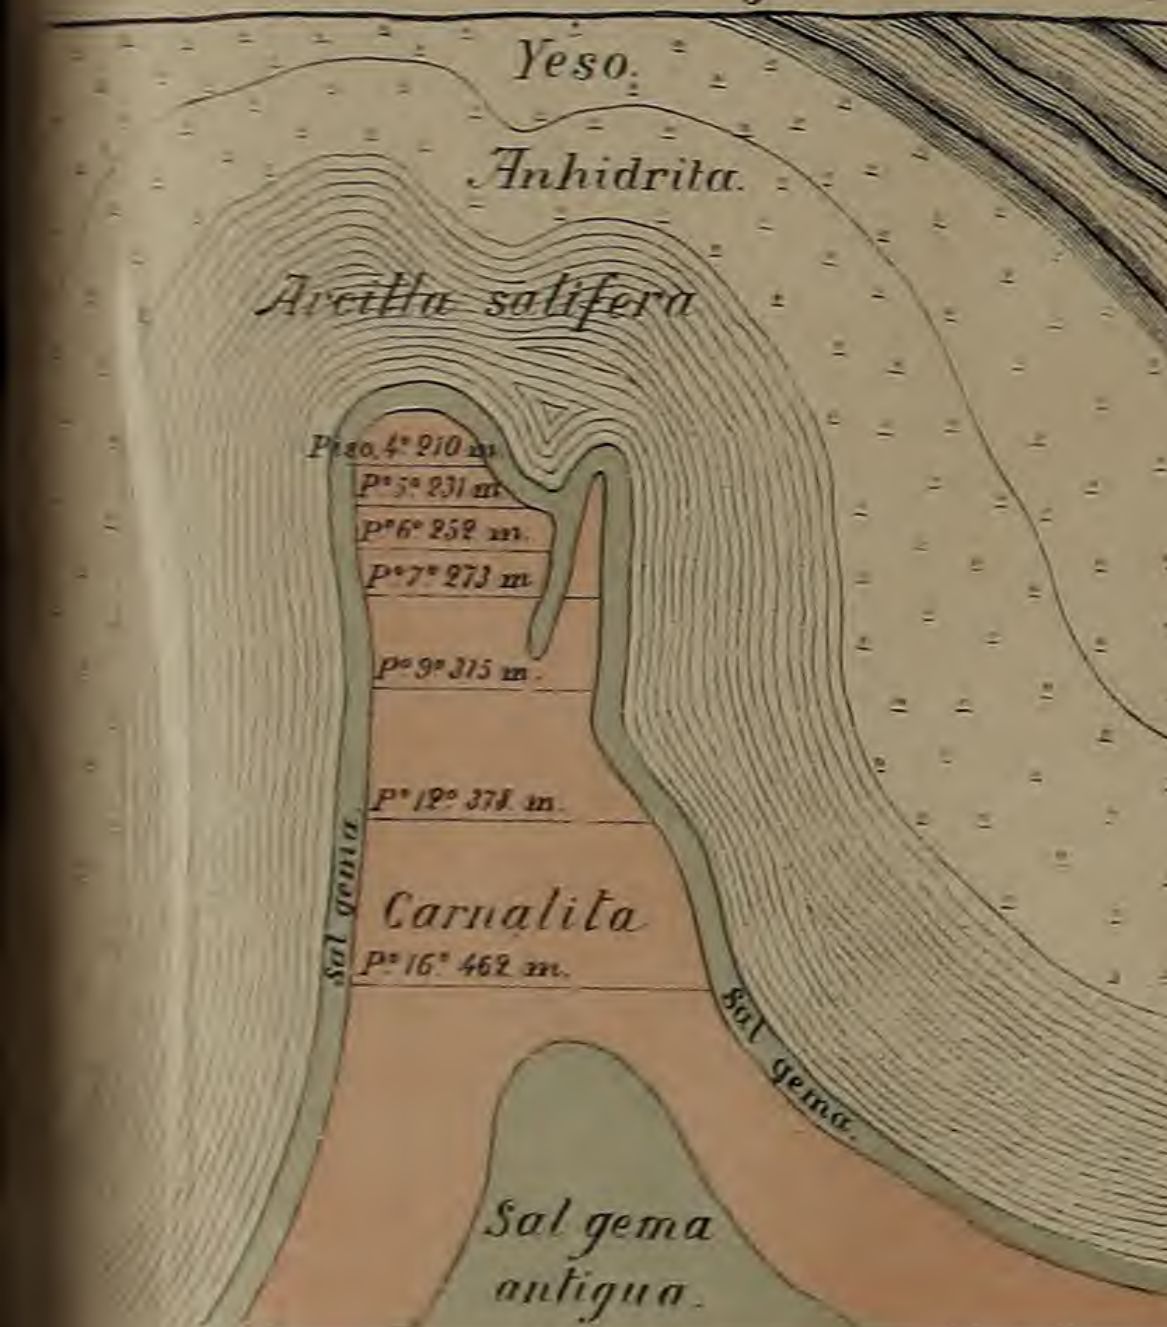 Yeso.
Anhidrita.
Arcilla salifera
Piso. 4º 210 m.
Pº 5º 231 m
Pº 6º 252 m.
Pº 7º 273 m
Pº 9º 315 m.
Pº 12º 378 m.
Carnalita
Pº 16º 462 m.
Sal gema.
Sal gema.
Sal gema
antigua.